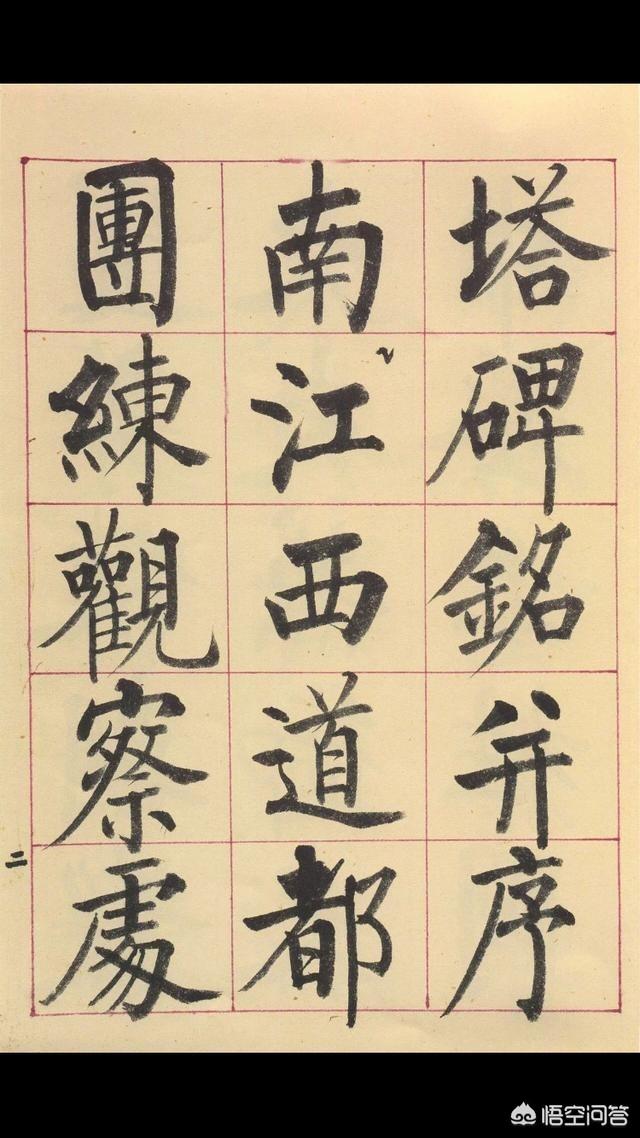 塔碑銘并序
南江西道都
團練觀察處
二
悟空问答